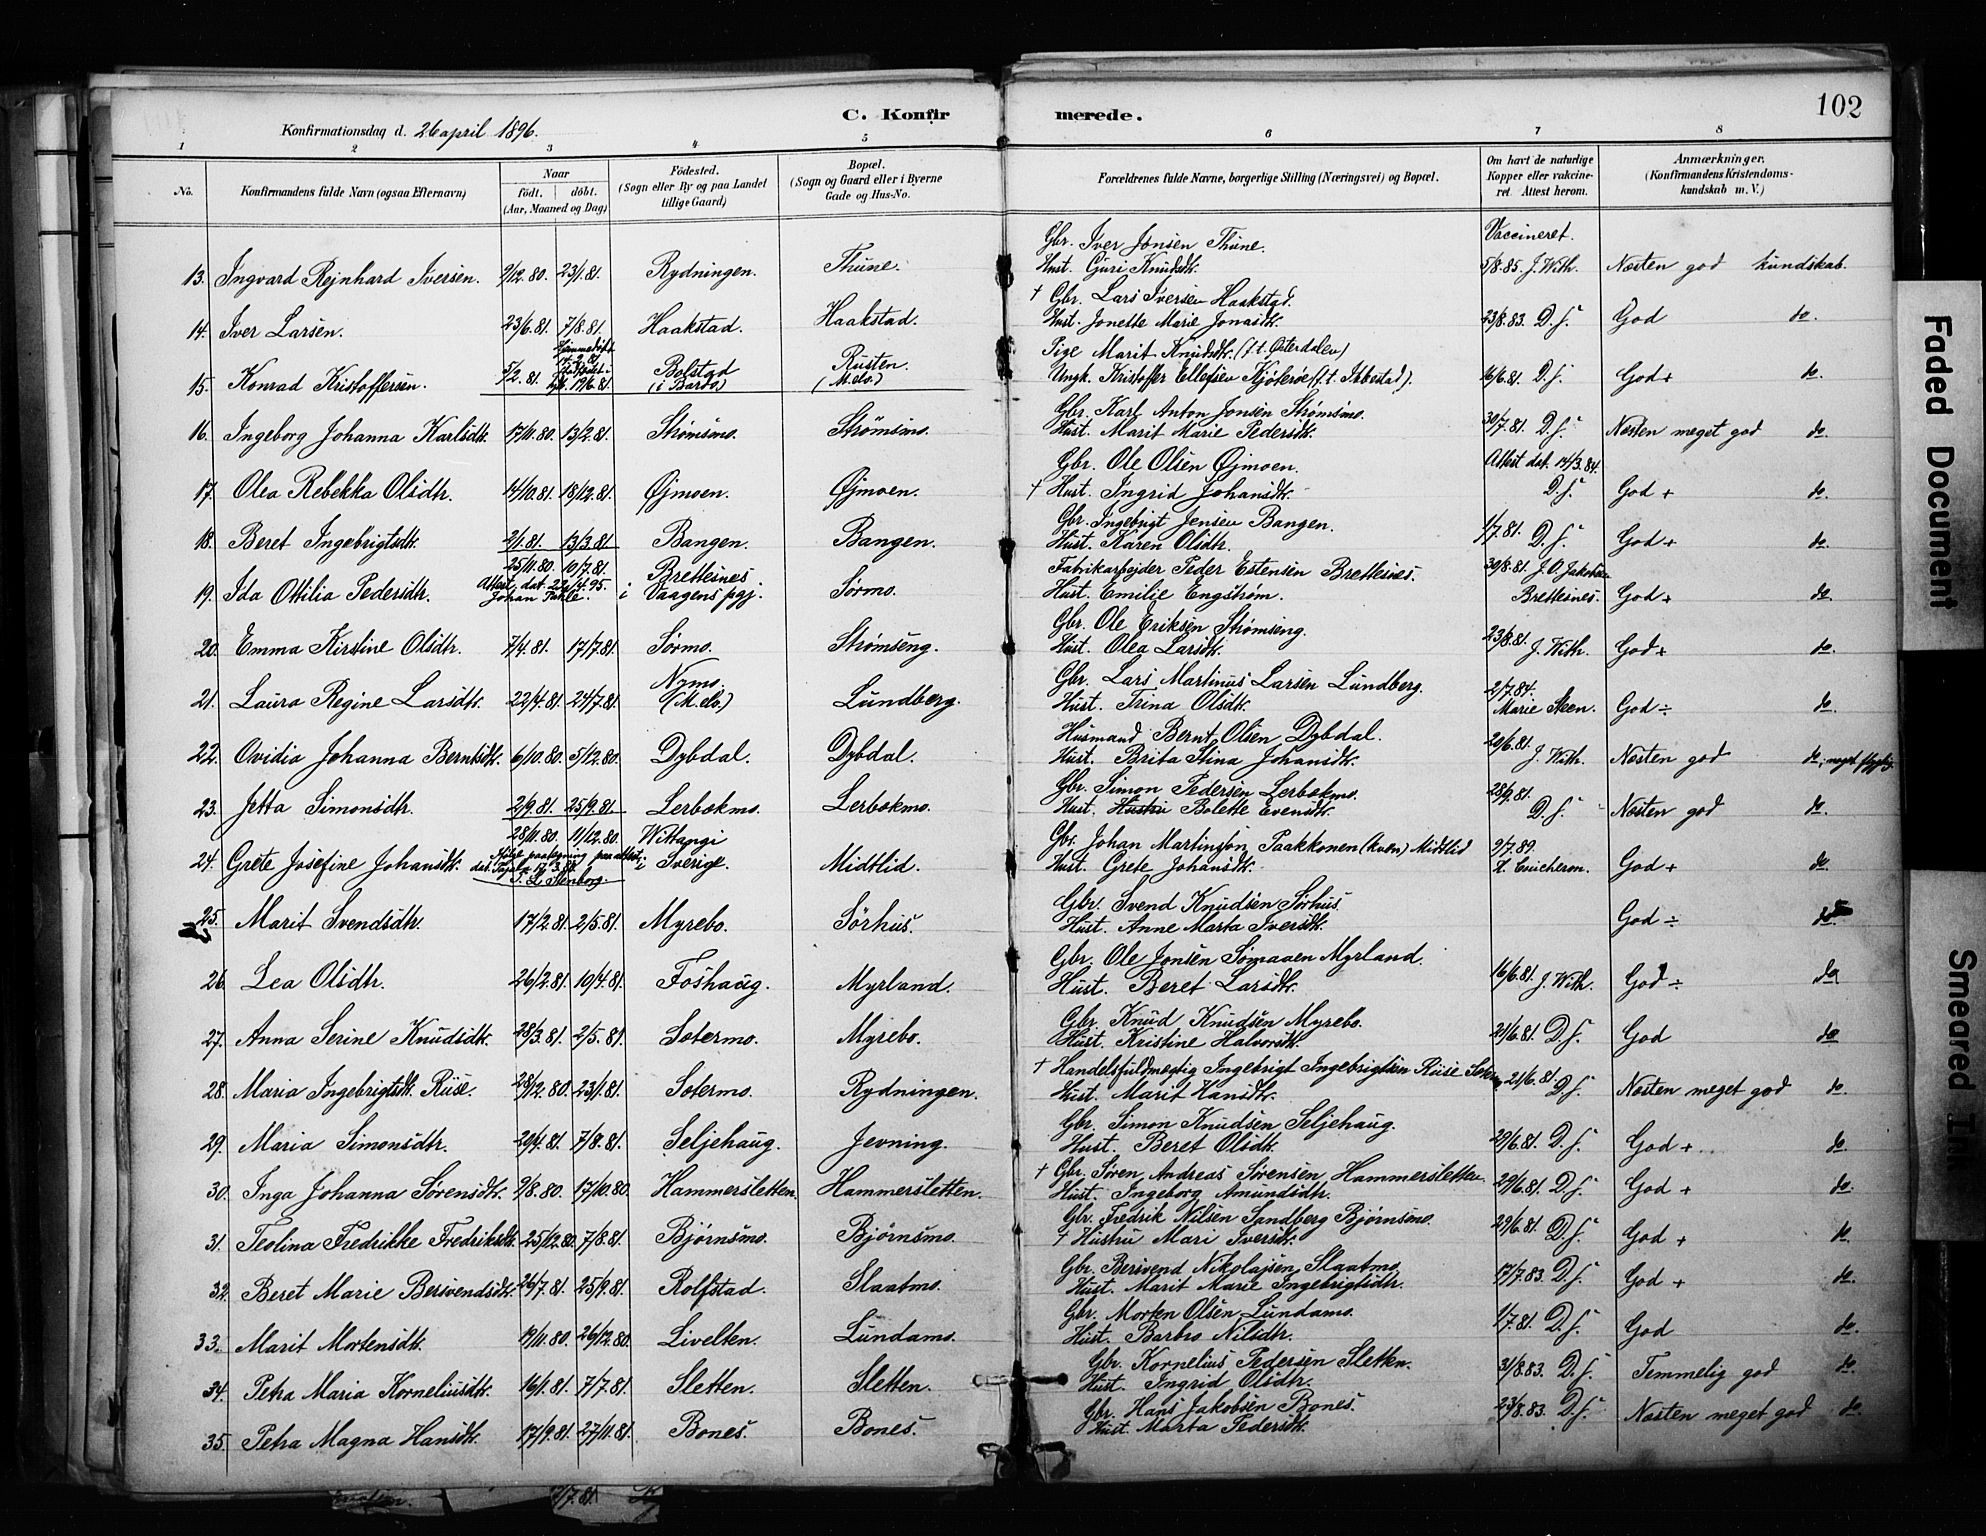 102
C. Konfirmerede.
Konfirmationsdag d. 26 april 1896.
1 2 3 4 5 6 7 8
No.
Konfirmandens fulde Navn (ogsaa Efternavn)
Naar
født. døbt.
(Aar, Maaned og Dag)
Fødested.
(Sogn eller By og paa Landet
tillige Gaard)
Bopæl.
(Sogn og Gaard eller i Byerne
Gade og Hus-No.
Forældrenes fulde Navne, borgerlige Stilling (Næringsvei) og Bopæl.
Om havt de naturlige
Kopper eller vakcine-
ret. Attest herom.
Anmærkninger.
(Konfirmandens Kristendoms-
kundskab m. V.)
Gbr. Iver Jonsen Thune. Vaccineret.
13. Ingvard Rejnhard Iversen. 9/12.80. 23/1.81. Rydningen. Thune. Hust. Guri Knudsdtr. 5/8.85. J. With. Næsten god kundskab.
† Gbr. Lars Iversen Haakstad.
14. Iver Larsen. 23/6.81. 7/8.81. Haakstad. Haakstad. Hust. Jonette Marie Jonasdtr. 23/8.83. D. S. God do.
Hjemmedøbt 14.2.81. Pige Marit Knudsdtr. (f. t. Østerdalen)
15. Konrad Kristoffersen. 5/2.81. 19/6.81. Bolstad (i Bardo) Rusten. (Maalselv.) Ungk. Kristoffer Ellefsen (f. t. Ibbestad). 16/6.81. D. S. God + do.
Gbr. Karl Anton Jonsen Strømsmo.
16. Ingeborg Johanna Karlsdtr. 17/11.80. 13/2.81. Strømsmo. Strømsmo. Hust. Marit Marie Pedersdtr. 30/7.81. D. S. Næsten meget god do.
Gbr. Ole Olsen Øjmoen. Attest dat. 14/3.84.
17. Olea Rebekka Olsdtr. 14/10.81. 18/12.81. Øjmoen. Øjmoen. † Hust. Ingrid Johansdtr. D. S. God + do.
Gbr. Ingebrigt Jensen Bangen.
18. Beret Ingebrigtsdtr. 2/1.81. 13/3.81 Bangen. Bangen. Hust. Karen Olsdtr. 1/7.81. D. S. God + do.
25/11.80. 10/7.81. Brettesnes Fabrikarbejder Peder Estensen Brettesnes. 30/8.81. J. O. Jakobsen
19. Ida Ottilia Pedersdtr. Attest, dat. 22/4.95. Johan i Vaagens pgj. Sørmo. Hust. Emilie Engstrøm. Brettesnes. God + do.
Gbr. Ole Eriksen Strømseng.
20. Emma Kirstine Olsdtr. 7/4.81. 17/7.81. Sørmo. Strømseng. Hust. Olea Larsdtr. 23/8.81. J. With. God + do.
Nymo. Gbr. Lars Martinus Larsen Lundberg. 2/7.84.
21. Laura Regine Larsdtr. 22/4.81. 24/7.81. (Maalselv) Lundberg. Hust. Trina Olsdtr. Marie Steen. God ÷ do.
Husmand Bernt Olsen Dybdal.
22. Ovidia Johanna Berntsdtr. 6/10.80. 5/12.80. Dybdal. Dybdal. Hust. Brita Stina Johansdtr. 20/6.81. J. With. Næsten god do; meget flygtig
Gbr. Simon Pedersen Lerbækmo.
23. Jetta Simonsdtr. 2/9.81. 25/9.81. Lerbækmo. Lerbækmo. Hust. Hustru Bolette Evensdtr. 28/9.81. D. S. Næsten god do.
28/11.80. 11/12.80. Wittangi Gbr. Johan Martinsson Paakkonen (kvæn) Midtlid 9/7.89.
24. Grete Josefine Johansdtr. Ifølge paategning paa attest i Sverige. Midtlid. Hust. Grete Johansdtr. God + do.
Gbr. Svend Knudsen Sørhus.
25. Marit Svendsdtr. 17/2.81. 2/5.81. Myrebo. Sørhus. Hust. Anne Marta Iversdtr. God ÷ do
Gbr. Ole Jonsen Somaaen Myrland.
26. Lea Olsdtr. 26/2.81. 10/4.81. Foshaug. Myrland. Hust. Beret Larsdtr. 16/6.81. J. With. God ÷ do
Gbr. Knud Knudsen Myrebo.
27. Anna Serine Knudsdtr. 28/3.81. 2/5.81. Sætermo. Myrebo. Hust. Kristine Halvorsdtr. 21/6.81. D. S. God do
† Handelsfuldmægtig Ingebrigt Ingebrigtsen Riise
28. Maria Ingebrigtsdtr. Riise. 28/12.80. 23/1.81. Sætermo. Rydningen. Hust. Marit Hansdtr. 21/6.81 D. S. Næsten meget god do.
Gbr. Simon Knudsen Seljehaug.
29. Maria Simonsdtr. 29/4.81. 7/8.81. Seljehaug. Jevning. Hust. Beret Olsdtr. 29/6.81. D. S. God + do.
† Gbr. Søren Andreas Sørensen Hammersletten
30. Inga Johanna Sørensdtr. 9/8.80. 17/10.80. Hammersletten. Hammersletten. Hust. Ingeborg Amundsdtr. 29/6.81. D. S. God + do.
Gbr. Fredrik Nilsen Sandberg Bjørnsmo.
31. Teolina Fredrikke Fredriksdtr. 25/12.80. 7/8.81. Bjørnsmo. Bjørnsmo. † Hustru Mari Iversdtr. 29/6.81. D. S. God + do.
Gbr. Bersvend Nikolajsen Slaatmo
32. Beret Marie Bersvendsdtr. 26/7.81. 25/9.81. Rolfstad. Slaatmo. Hust. Marit Marie Ingebrigtsdtr. 17/7.83. D. S. God + do.
Gbr. Morten Olsen Lundamo.
33. Marit Mortensdtr. 19/11.80. 26/12.80. Livelten. Lundamo. Hust. Barbro Nilsdtr. 1/7.81. D. S. God do.
Gbr. Kornelius Pedersen Sletten.
34. Petra Maria Korneliusdtr. 16/1.81. 7/7.81. Sletten. Sletten. Hust. Ingrid Olsdtr. 31/8.83. D. S. Temmelig god do.
Gbr. Hans Jakobsen Bones.
35. Petra Magna Hansdtr. 17/9.81. 27/11.81. Bones. Bones. Hust. Marta Pedersdtr. 23/8.83. D. S. Næsten meget god do.
7/7.81.
Faded Document
Smeared Ink